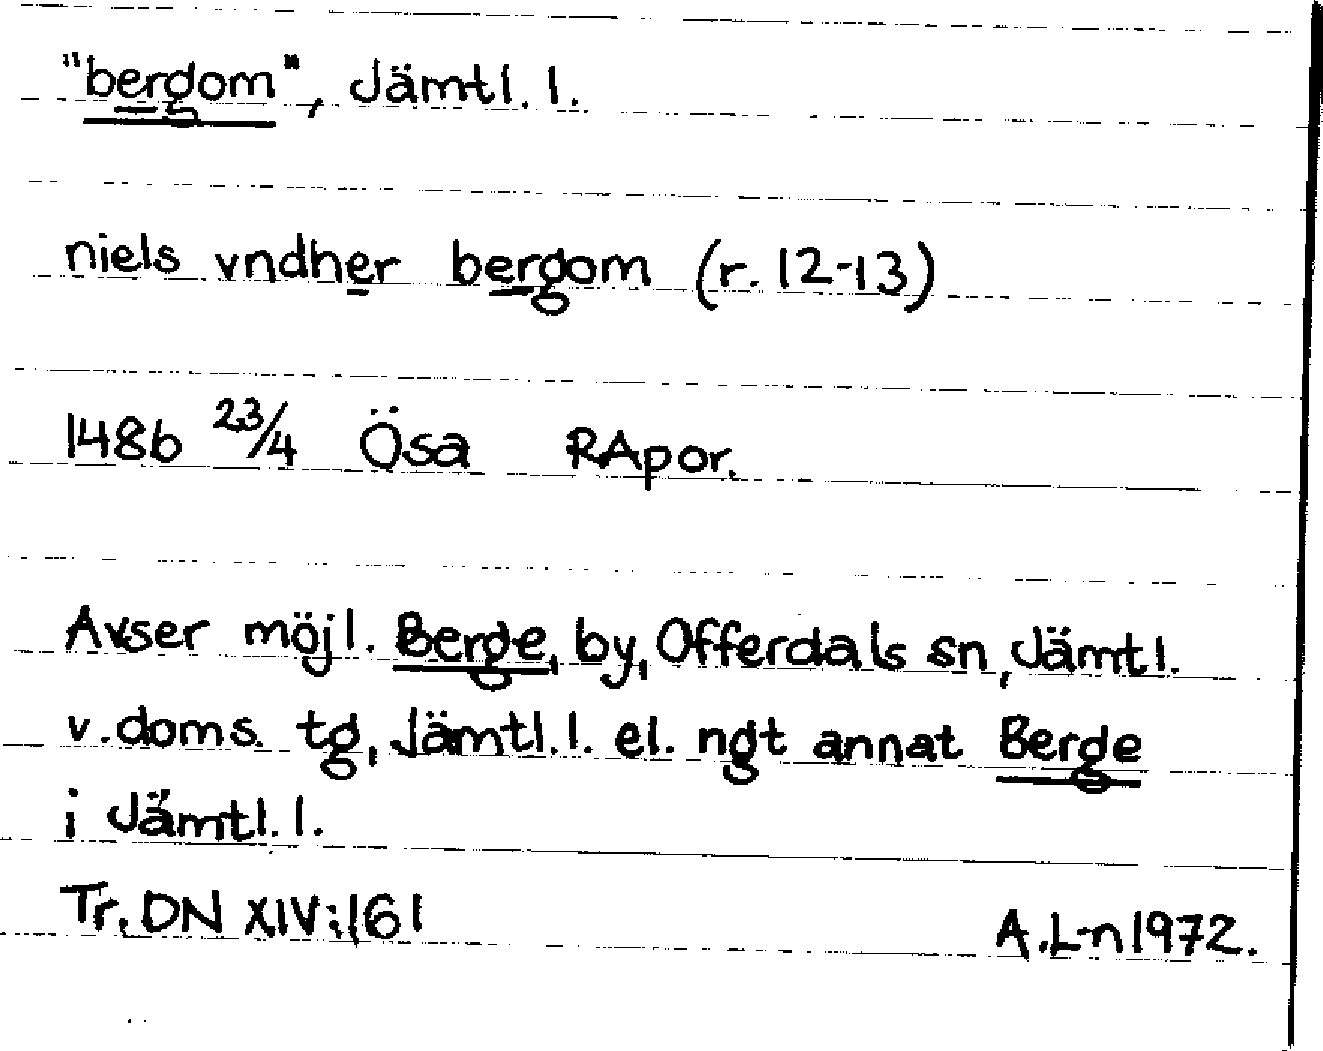 "bergom", Jämtl. l.
niels vndher bergom (r. 12-13)
1486 23/4 Ösa RApor.
Avser möjl. Berge, by, Offerdals sn, Jämtl.
v. doms. tg, Jämtl. l. el. ngt annat Berge
i Jämtl. l.
Tr. DN XIV:161 A.L-n 1972.